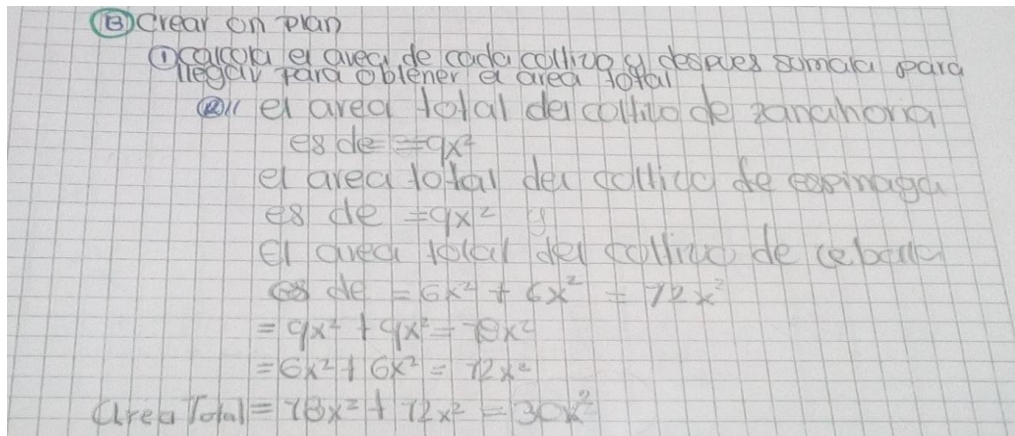 B Crear un plan
① calcula el area de cada coltivo y despues sumala para
llegar para obtener el area total
② el area total del coltivo de zanahoria
es de = 9x²
el area total del coltivo de espinaga
es de = 9x² y
El area total del coltivo de cebolla
es de = 6x² + 6x² = 12x²
= 9x² + 9x² = 18x²
= 6x² + 6x² = 12x²
area Total = 18x² + 12x² = 30x²